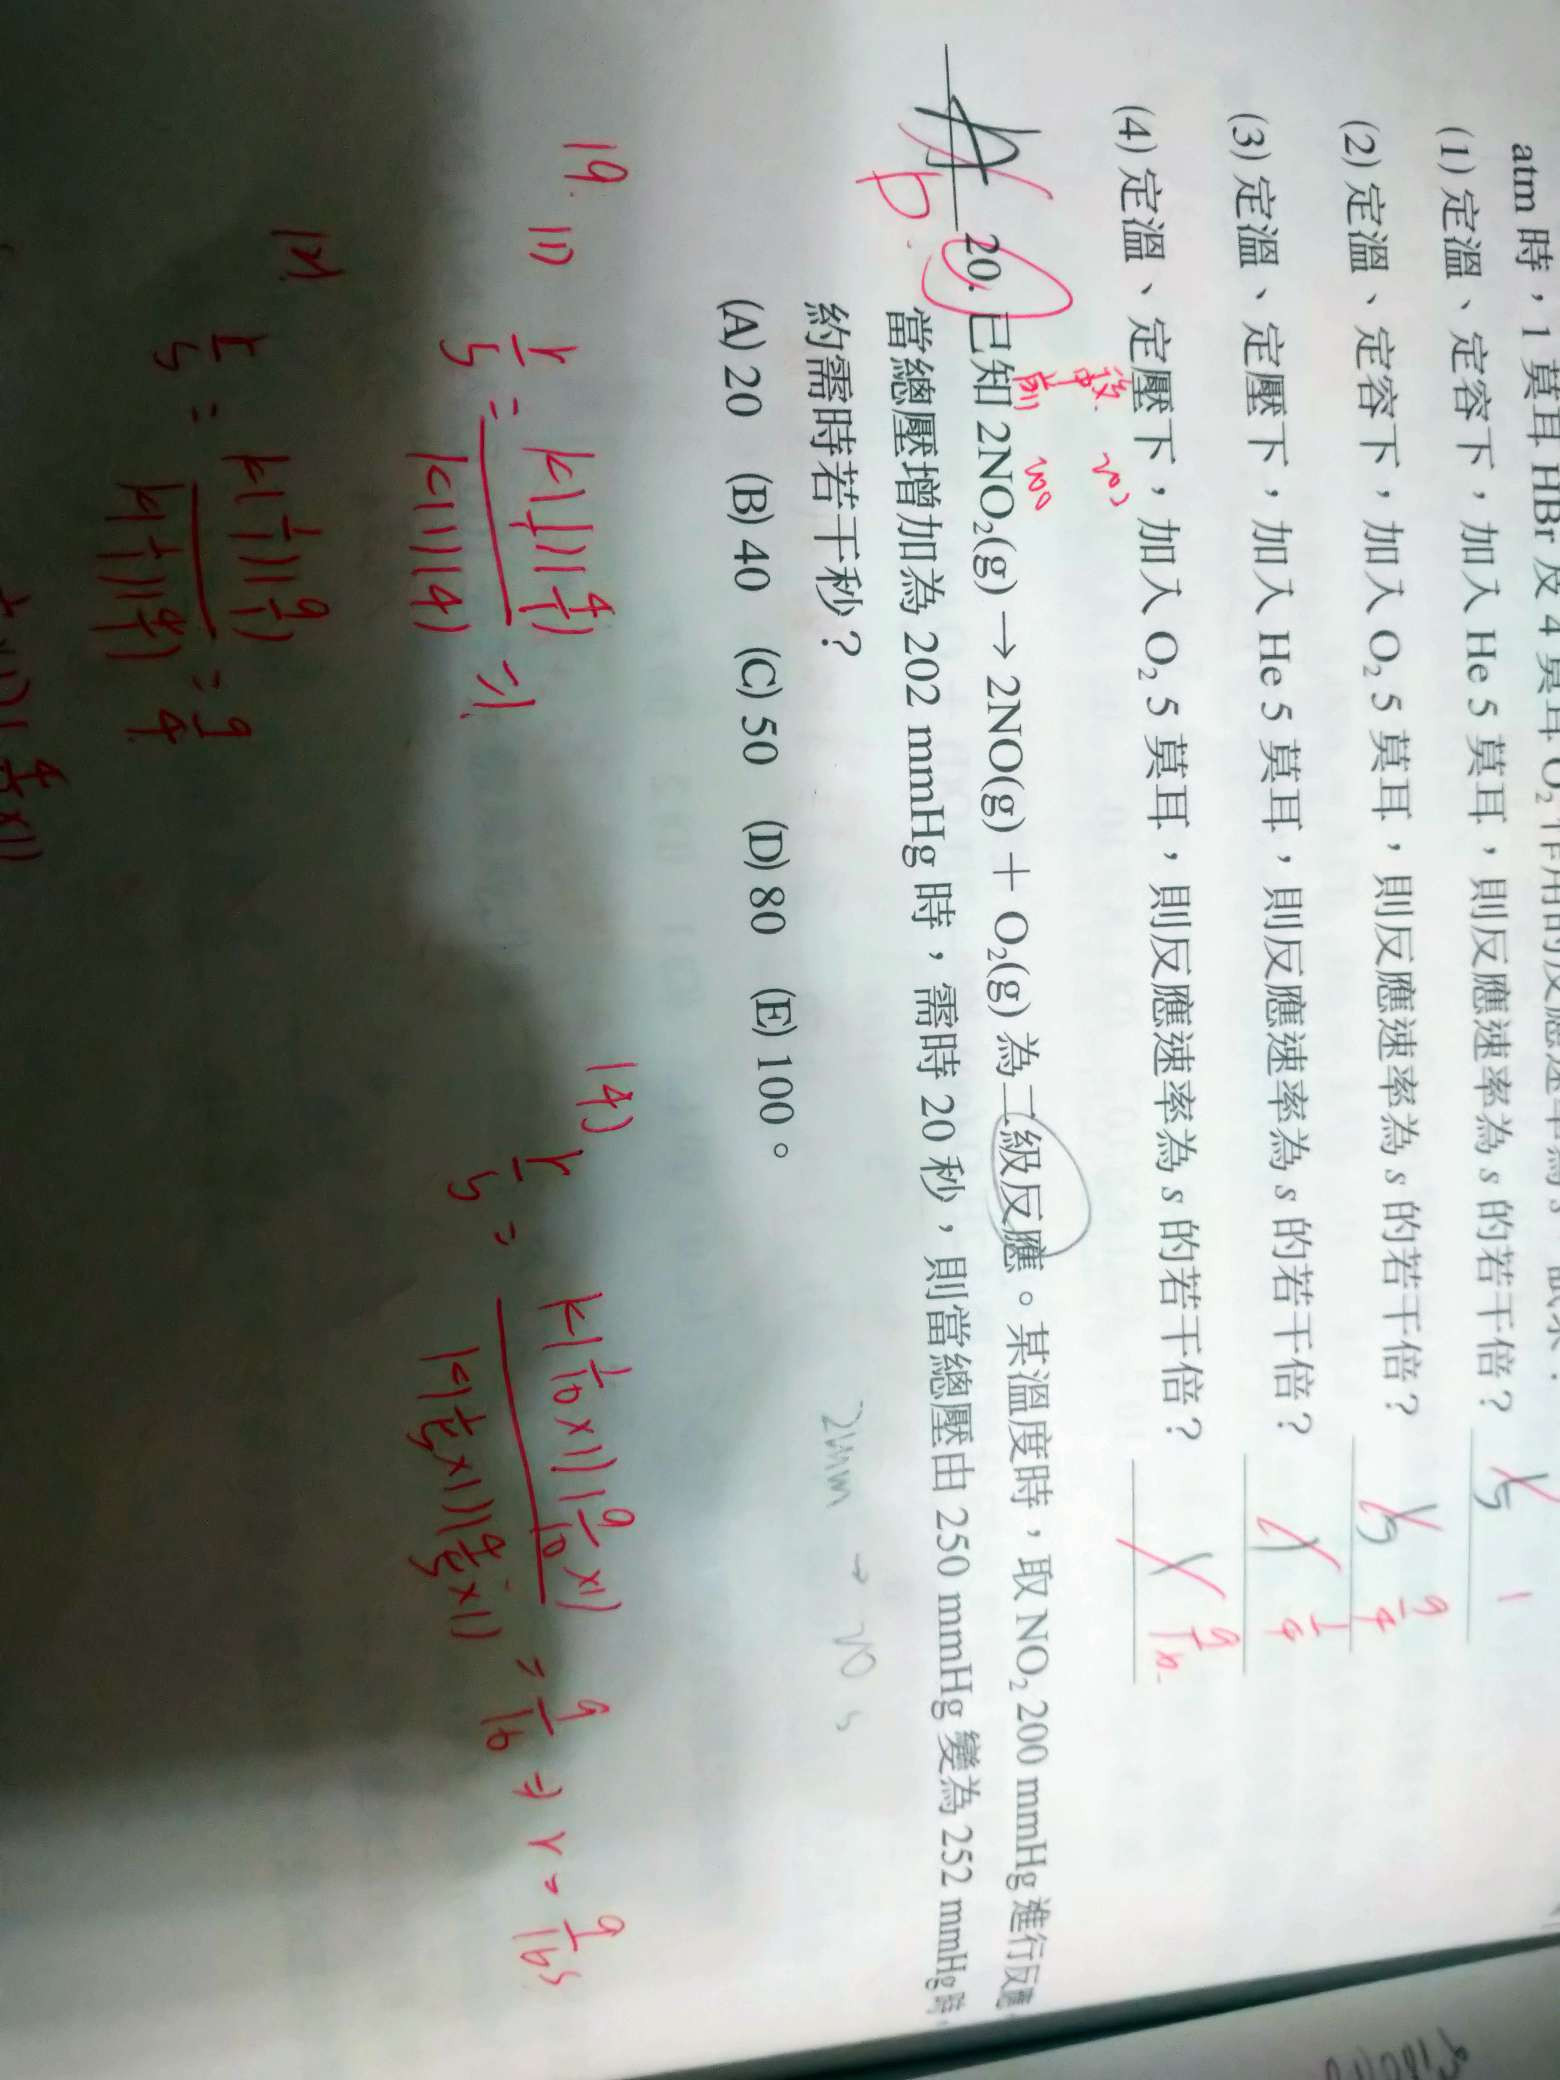 atm 時，1 莫耳 HBr 及 4 莫耳 O₂ 作用的反應速率為 s，試求：
(1) 定溫、定容下，加入 He 5 莫耳，則反應速率為 s 的若干倍？ 1
(2) 定溫、定容下，加入 O₂ 5 莫耳，則反應速率為 s 的若干倍？ 9/4
(3) 定溫、定壓下，加入 He 5 莫耳，則反應速率為 s 的若干倍？ 1/4
(4) 定溫、定壓下，加入 O₂ 5 莫耳，則反應速率為 s 的若干倍？ 9/16
後 202
前 200
20. 已知 2NO₂(g) → 2NO(g) + O₂(g) 為二級反應。某溫度時，取 NO₂ 200 mmHg 進行反應，
當總壓增加為 202 mmHg 時，需時 20 秒，則當總壓由 250 mmHg 變為 252 mmHg 時，
約需時若干秒？
2mm → 20 s
(A) 20 (B) 40 (C) 50 (D) 80 (E) 100。
19. (1) r/s = k(1/1)(4/1) / k(1)(4) = 1
(2) r/s = k(1/1)(9/1) / k(1/1)(4/1) = 9/4
(4) r/s = k(1/10×1)(9/10×1) / k(1/5×1)(4/5×1) = 9/16 ⇒ r = 9/16 s